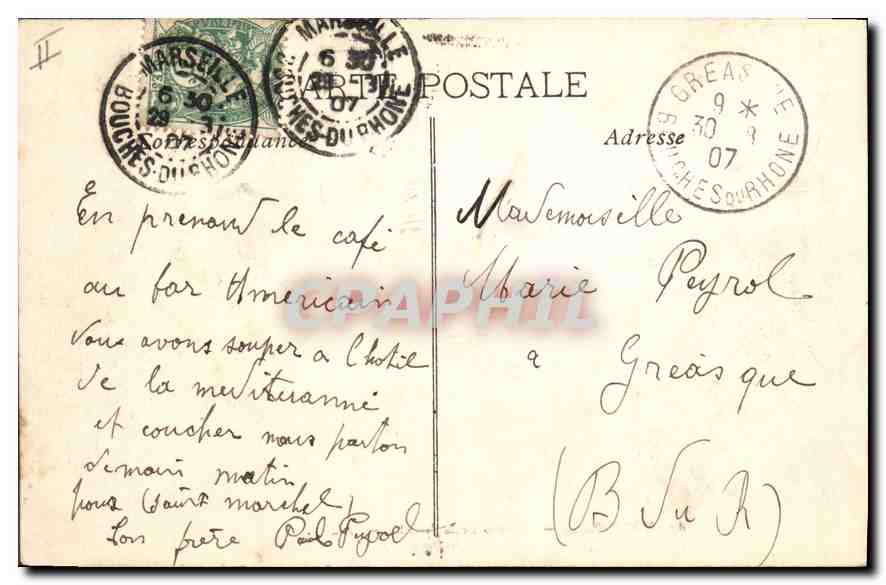 II
MARSEILLE
6 30
29 3
07
BOUCHES-DU-RHONE
MARSEILLE
6 30
07
BOUCHES-DU-RHONE
GREASQUE
9 *
30 3
07
BOUCHES DU RHONE
CARTE POSTALE
Correspondance
Adresse
En prenand le café
au bar Américain
Nous avons souper a l'hotil
de la mediteranné
et coucher nous parton
demain matin
pour (Saint marchel)
Ton frère Paul Peyrol
Mademoiselle
Marie Peyrol
a Greasque
(B du R)
CPAPHIL